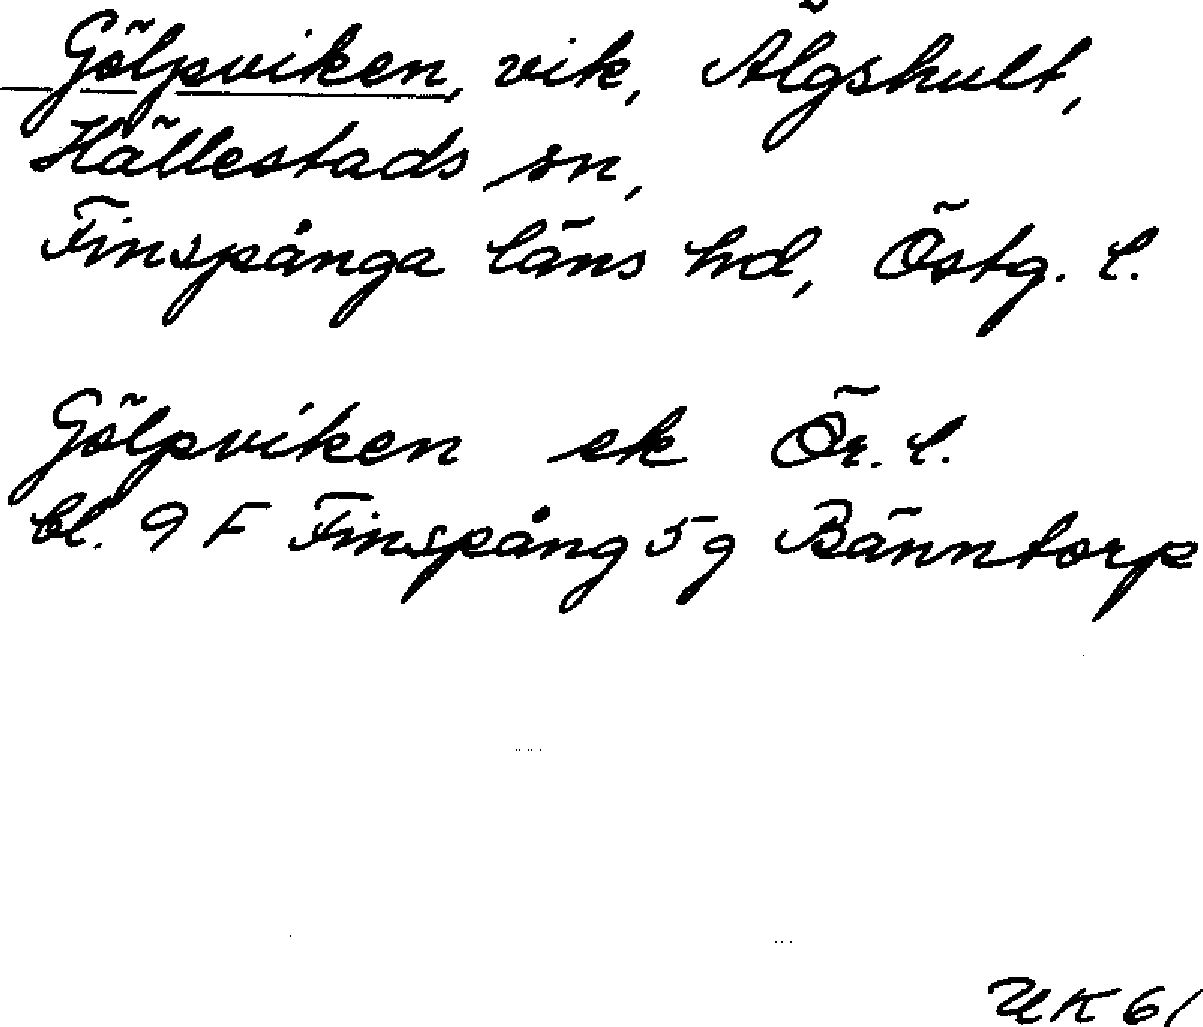 Gölpviken, vik, Älgshult,
Hällestads sn,
Finspånga läns hd, Östg. l.
Gölpviken ek Ör. l.
bl. 9 F Finspång 5 g Bänntorp
UK 61